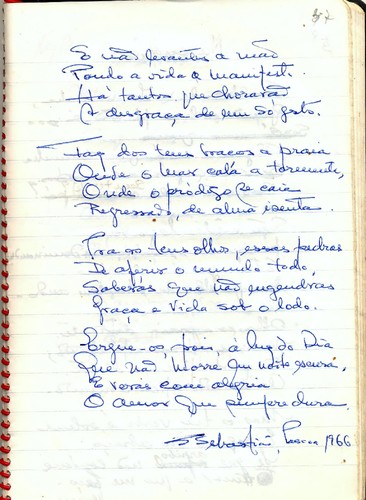 E não levantes a mão
Pondo a vida a manifesto.
Há tantos que chorarão
A desgraça de um só gesto.
Faz dos teus braços a praia
Onde o mar cala a tormenta,
Onde o pródigo se caia
Regressado, de alma isenta.
os teus olhos, essas pedras
De aferir o mundo todo,
Saberás que não engendras
Graça e vida sob o lodo.
Ergue-os, pois, à luz do Dia
Que não morre em noite escura,
E verás com alegria
O amor que sempre dura.
S. Sebastião, Páscoa 1966